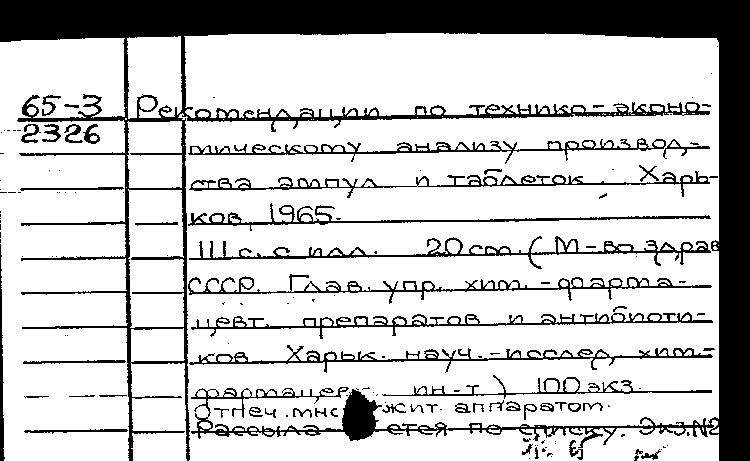 65-3 Рекомендации по технико-эконо-
2326 мическому анализу производ-
ства ампул и таблеток. Харь-
ков, 1965.
111 с. с илл. 20 cm. (М-во здрав
СССР. Глав. упр. хим.-фарма-
цевт. препаратов и антибиоти-
ков Харьк. науч.-исслед, хим-
фармацевт. ин-т) 100 экз.
Отпеч. жит. аппаратом.
Рассыла ется по списку. Экз.№2